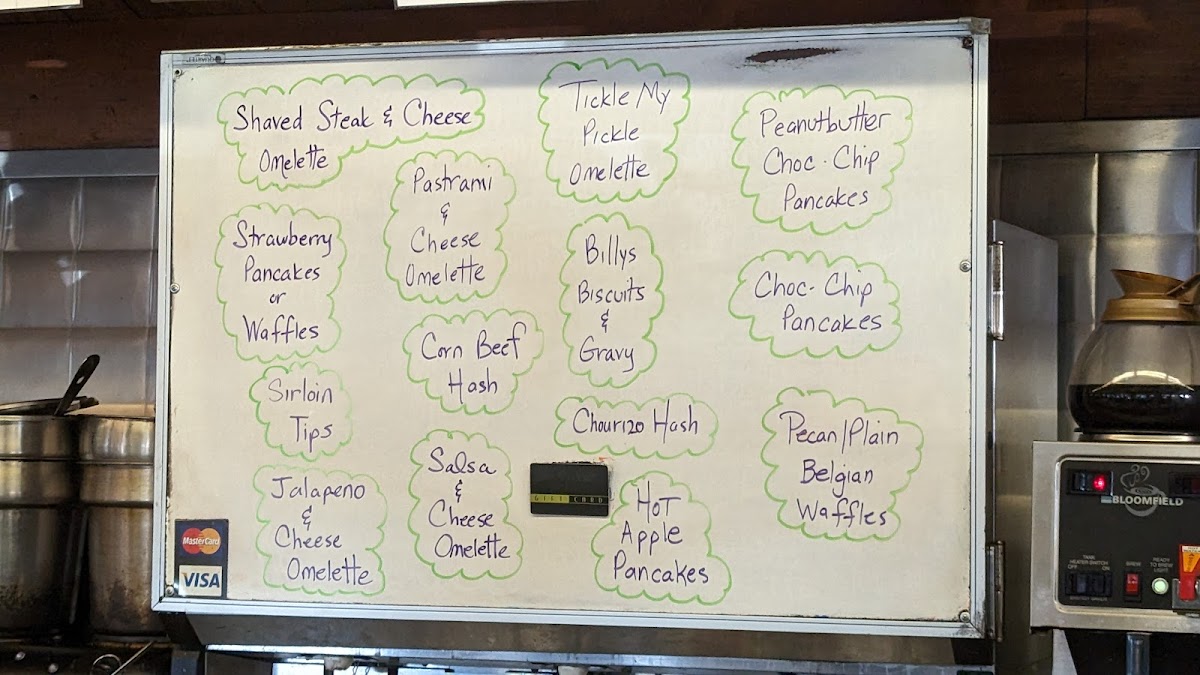 Shaved Steak & Cheese
Omelette
Strawberry
Pancakes
or
Waffles
Sirloin
Tips
Jalapeno
&
Cheese
Omelette
MasterCard
VISA
Pastrami
&
Cheese
Omelette
Corn Beef
Hash
Salsa
&
Cheese
Omelette
Tickle My
Pickle
Omelette
Billys
Biscuits
&
Gravy
Chourizo Hash
GIFT CARD
Hot
Apple
Pancakes
Peanutbutter
Choc. Chip
Pancakes
Choc. Chip
Pancakes
Pecan/Plain
Belgian
Waffles
BLOOMFIELD
OFF
ON
BREW
READY
TO BREW
LIGHT